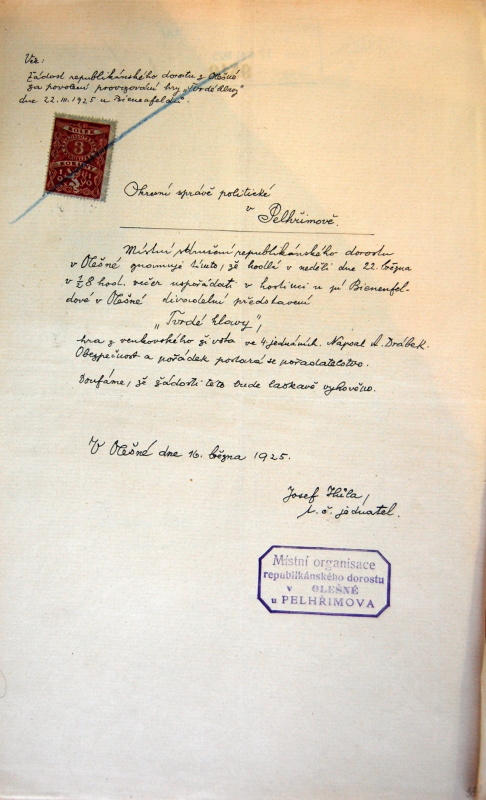 Věc:
Žádost republikánského dorostu z Olešné
za povolení provozování hry „Tvrdé hlavy"
dne 22.III.1925 u Bienenfeldů.
KOLEK
3
KORUNY
Okresní správě politické
v
Pelhřimově.
Místní sdružení republikánského dorostu
v Olešné oznamuje tímto, že hodlá v neděli dne 22. března
v ½8 hod. večer uspořádati v hostinci u pí Bienenfel-
dové v Olešné divadelní představení
„Tvrdé hlavy",
hra z venkovského života ve 4 jednáních. Napsal A. Drábek.
O bezpečnost a pořádek postará se pořadatelstvo.
Doufáme, že žádosti této bude laskavě vyhověno.
V Olešné dne 16. března 1925.
Josef
t. č. jednatel.
Místní organisace
republikánského dorostu
v OLEŠNÉ
u PELHŘIMOVA